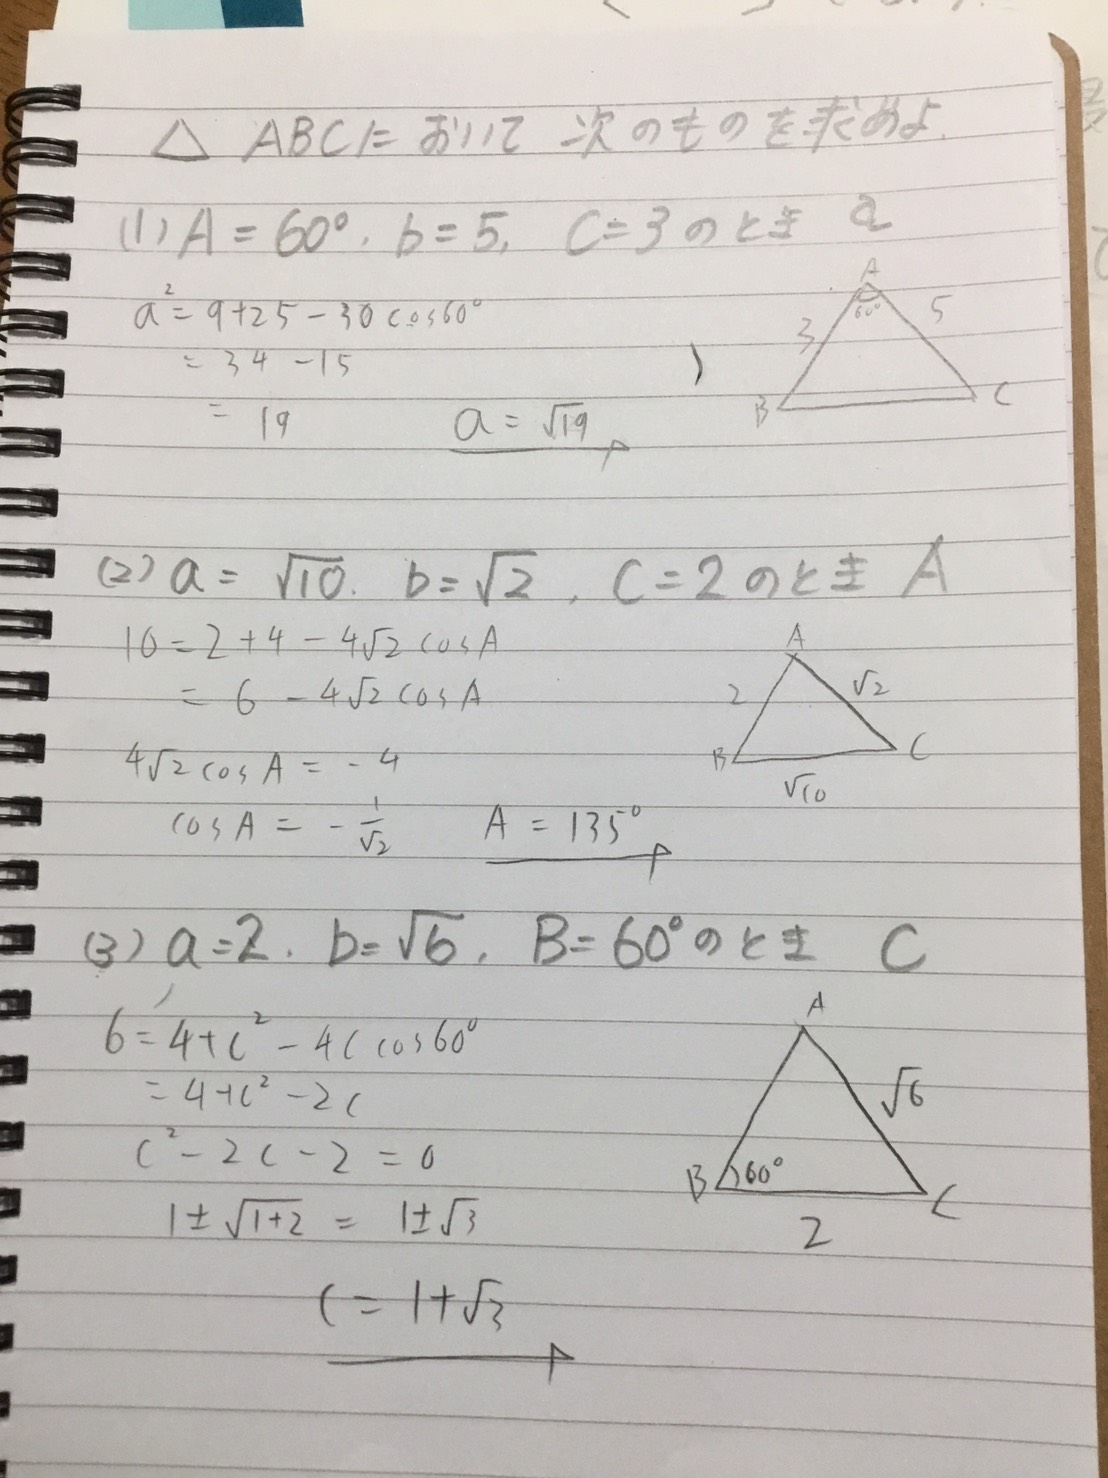 △ ABCにおいて 次のものを求めよ.
(1) A = 60°, b = 5, C = 3 のとき a
a² = 9+25 - 30 cos60°
= 34 - 15
= 19
a = √19
A
60°
3
5
B
C
(2) a = √10. b = √2, C = 2 のとき A
10 = 2 + 4 - 4√2 cosA
= 6 - 4√2 cosA
4√2 cosA = -4
cosA = - 1/√2
A = 135°
A
2
√2
B
C
√10
(3) a = 2. b = √6, B = 60° のとき C
6 = 4 + c² - 4c cos60°
= 4 + c² - 2c
c² - 2c - 2 = 0
1 ± √1+2 = 1 ± √3
c = 1 + √3
A
√6
B
60°
C
2